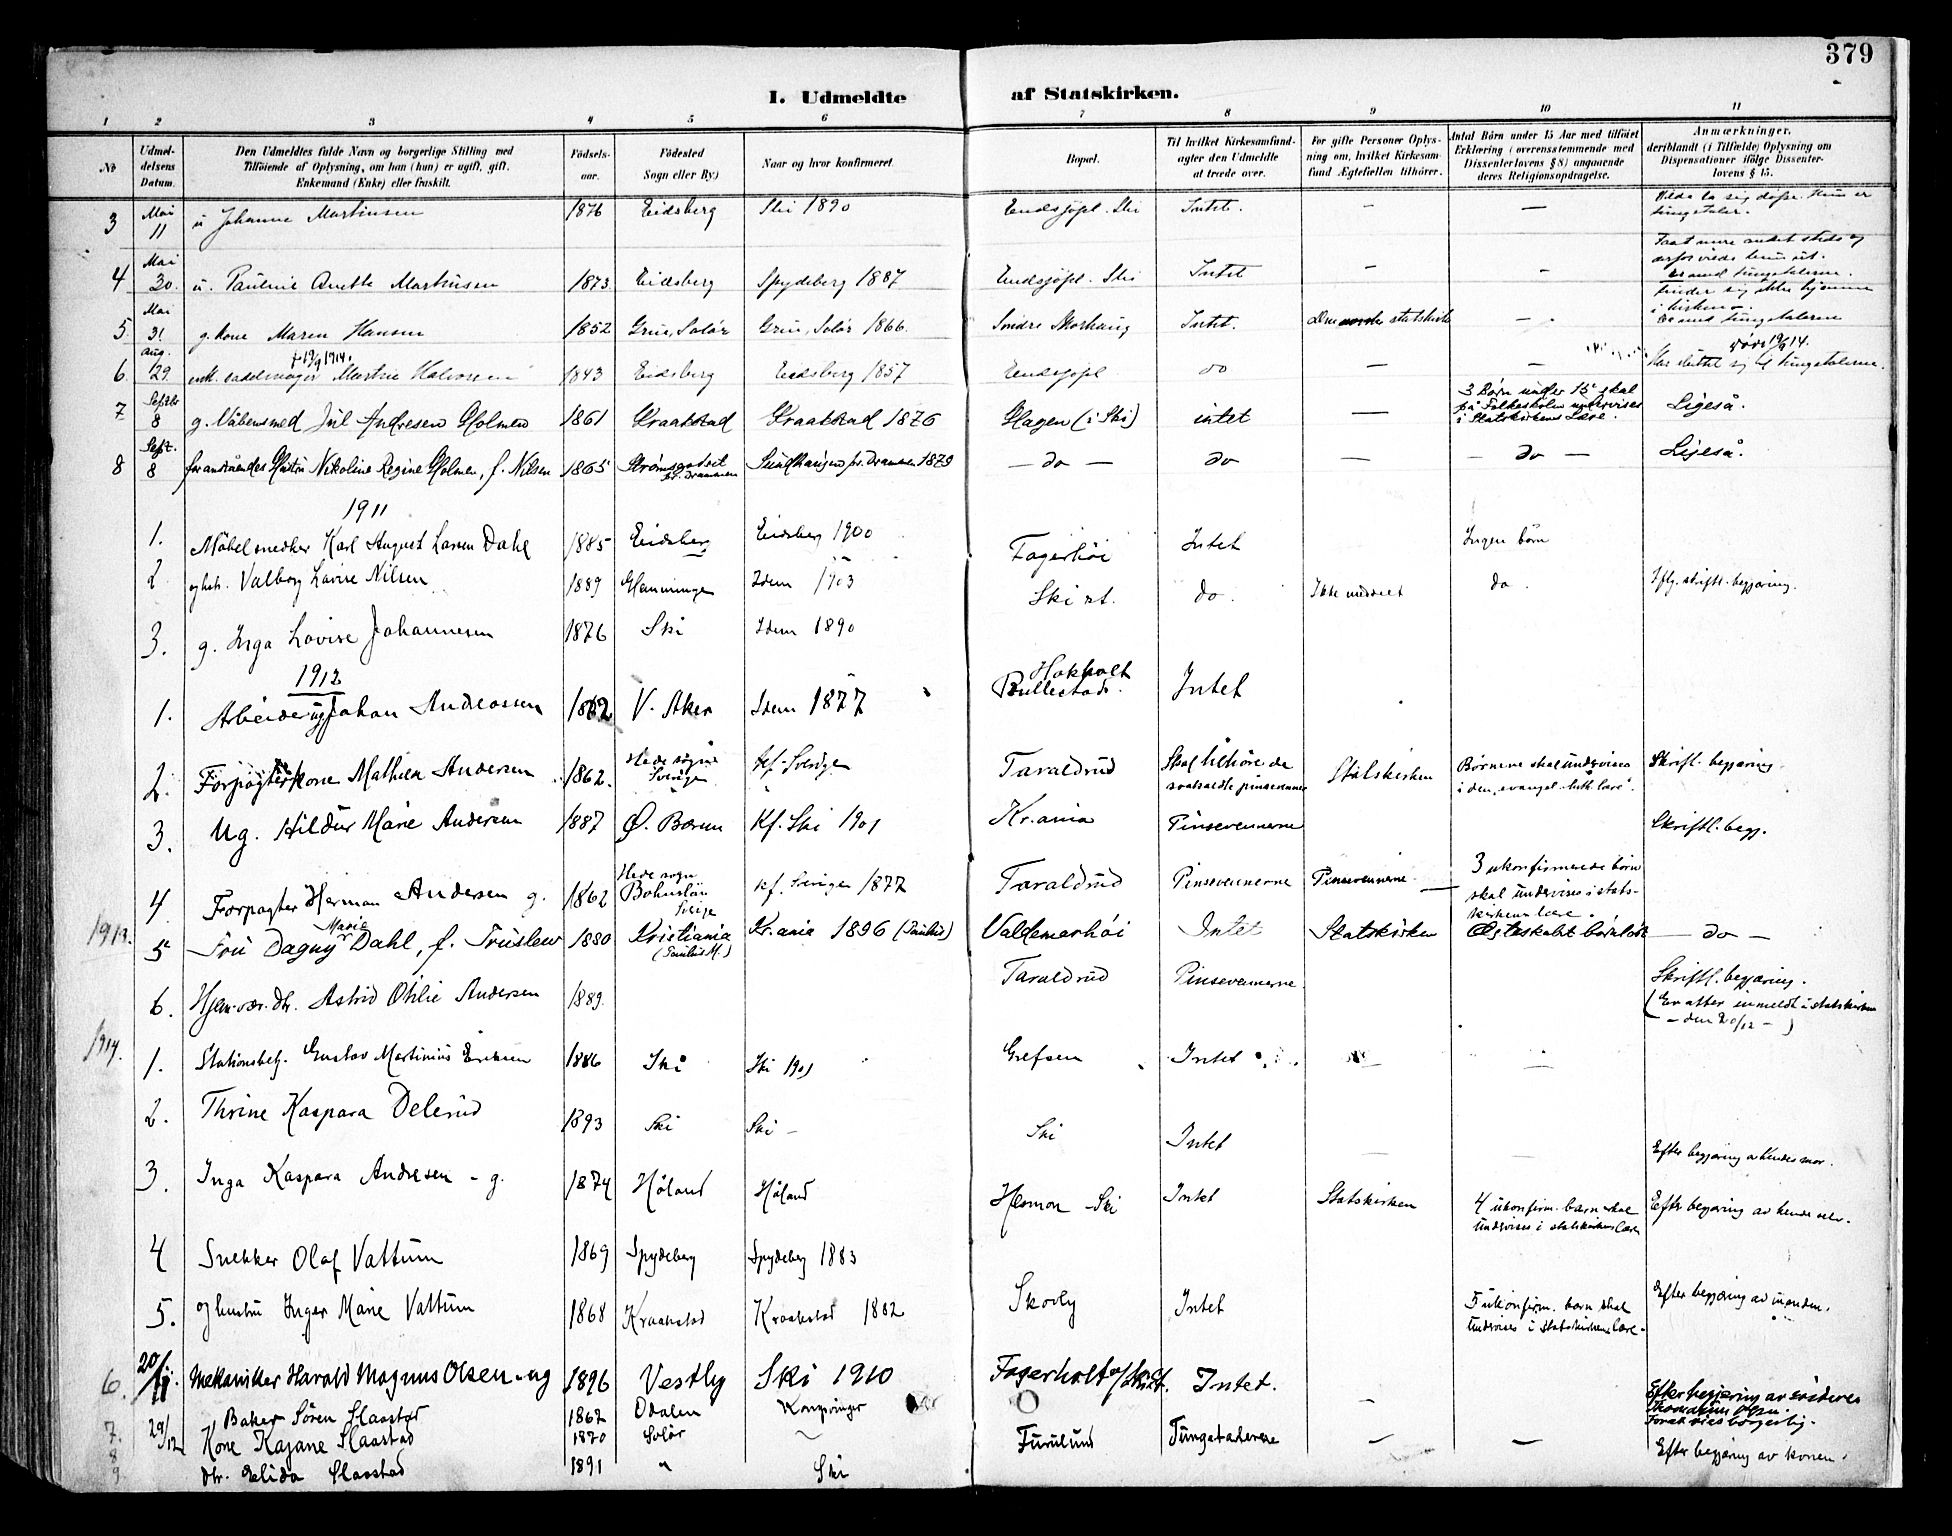 379
I. Udmeldte af Statskirken.
1 2 3 4 5 6 7 8 9 10 11
No
Udmel-
delsens
Datum.
Den Udmeldtes fulde Navn og borgerlige Stilling med
Tilføiende af Oplysning, om han (hun) er ugift, gift,
Enkemand (Enke) eller fraskilt.
Fødsels-
aar.
Fødested
Sogn eller By)
Naar og hvor konfirmeret.
Bopæl.
Til hvilket Kirkesamfund-
agter den Udmeldte
at træde over.
For gifte Personer Oplys-
ning om, hvilket Kirkesam-
fund Ægtefællen tilhører.
Antal Børn under 15 Aar med tilføiet
Erklæring (overensstemmende med
Dissenterlovens § 8) angaaende
deres Religionsopdragelse.
Anmærkninger,
deriblandt (i Tilfælde) Oplysning om
Dispensationer ifølge Dissenter-
lovens § 15.
3 Mai 11 u Johanne Martinsen 1876 Eidsberg Ski 1890 Endsjøpl. Ski Intet. — —
4 Mai 30. u. Pauline Anette Martinsen 1873 Eidsberg Spydeberg 1887 Endsjøpl. Ski Intet - -
5. Mai 31 g. kone Maren Hansen 1852 Grue, Solør Grue, Solør 1866. Søndre Skorhaug Intet. statskirk — .
6. Aug. 29. Martine Halvorsen 1843 Eidsberg Eidsberg 1857 Endsjøpl do — —
† 19/9 1914.
Har sluttet sig til tungetalerne.
7 Septbr 8 g. Våbensmed Jul Andresen Holmen 1861 Kraakstad Kraakstad 1876 Hagen (i Ski) intet —
3 Børn under 15 skal
på Folkeskolen undervises
i Statskirkens Lære.
Ligeså.
8 Sept. 8 foranståendes Hustru Nikoline Regine Holmen, f. Nilsen 1865 Strømsgodset
pr. Drammen
Sundhaugen pr. Drammen 1879 — do — do — — do — Ligeså.
1911
1. Møbelsnedker Karl August Larsen Dahl 1885 Eidsberg Eidsberg 1900 Fagerhøi Intet Ingen børn
2 og hst. Valborg Lovise Nilsen 1889 Glemminge Idem 1903 Ski st. do. Ikke utmeldt do. Iflg. skriftl. begjæring.
3. g. Inga Lovise Johannesen 1876 Ski Idem 1890
1912
1. Arbeider ug Johan Andreassen 1862 V. Aker Idem 1877 Hokholt
Bullestad. Intet
2. Forpagterkone Mathea Andersen 1862. Hede sogn
Sverige kf. Sverige Taraldrud Skal tilhøre de
saakaldte pinsevenner Statskirken
Børnene skal undervises
i den evangel. luth. lære.
Skriftl. begjæring.
3. Ug. Hildur Marie Andersen 1887 Ø. Bærum Kf. Ski 1901 Kr.ania Pinsevennerne Skriftl. begj.
4 Forpagter Herman Andersen g. 1862 Hede sogn
Bohuslän
Sverige kf. Sverige 1877 Taraldrud Pinsevennerne Pinsevennerne —
3 ukonfirmerede børn
skal undervises i stats-
kirkens lære.
1913.
5 Fru Dagny Marie Dahl, f. Truslew 1880 Kristiania
(Paulus M.) Kr.ania 1896 (Paulus) Valdemarhøi Intet Statskirken Ægteskabet børnløst — do —
6. Hjem.vær. dtr. Astrid Otilie Andersen 1889. Taraldrud Pinsevennerne.
Skriftl. begjæring.
(Er atter inmeldt i statskirken
- den 20/12 - )
1914.
1. Stationsbetj. Gustav Martinius Eriksen 1886 Ski Ski 1901 Grefsen Intet — —
2. Thrine Kaspara Delerud 1893 Ski Ski — Ski Intet — — Efter begjæring av hendes mor.
3. Inga Kaspara Andresen - g. 1874 Høland Høland Hesmon - Ski Intet Statskirken
4 ukonfirm. barn skal
undervises i statskirkens lære
Efter begjæring av hende selv.
4 Snekker Olaf Vattum 1869 Spydeberg Spydeberg 1883
5. og hustru Inger Marie Vattum 1868 Kraakstad Kraakstad 1882 Skovly Intet
5 ukonfirm. barn skal
undervises i statskirkens lære.
Efter begjæring av manden.
6. 20/11. Mekaniker Harald Magnus Olsen - ug 1896 Vestby Ski 1910 Intet. —
7. 29/12 Baker Søren Slaastad 1862 Odalen Kongsvinger
8 Kone Kajane Slaastad 1870 Solør ~ Furulund Tungetalerne — — Efter begjæring av konen.
9 dtr. Elida Slaastad 1891 " Ski